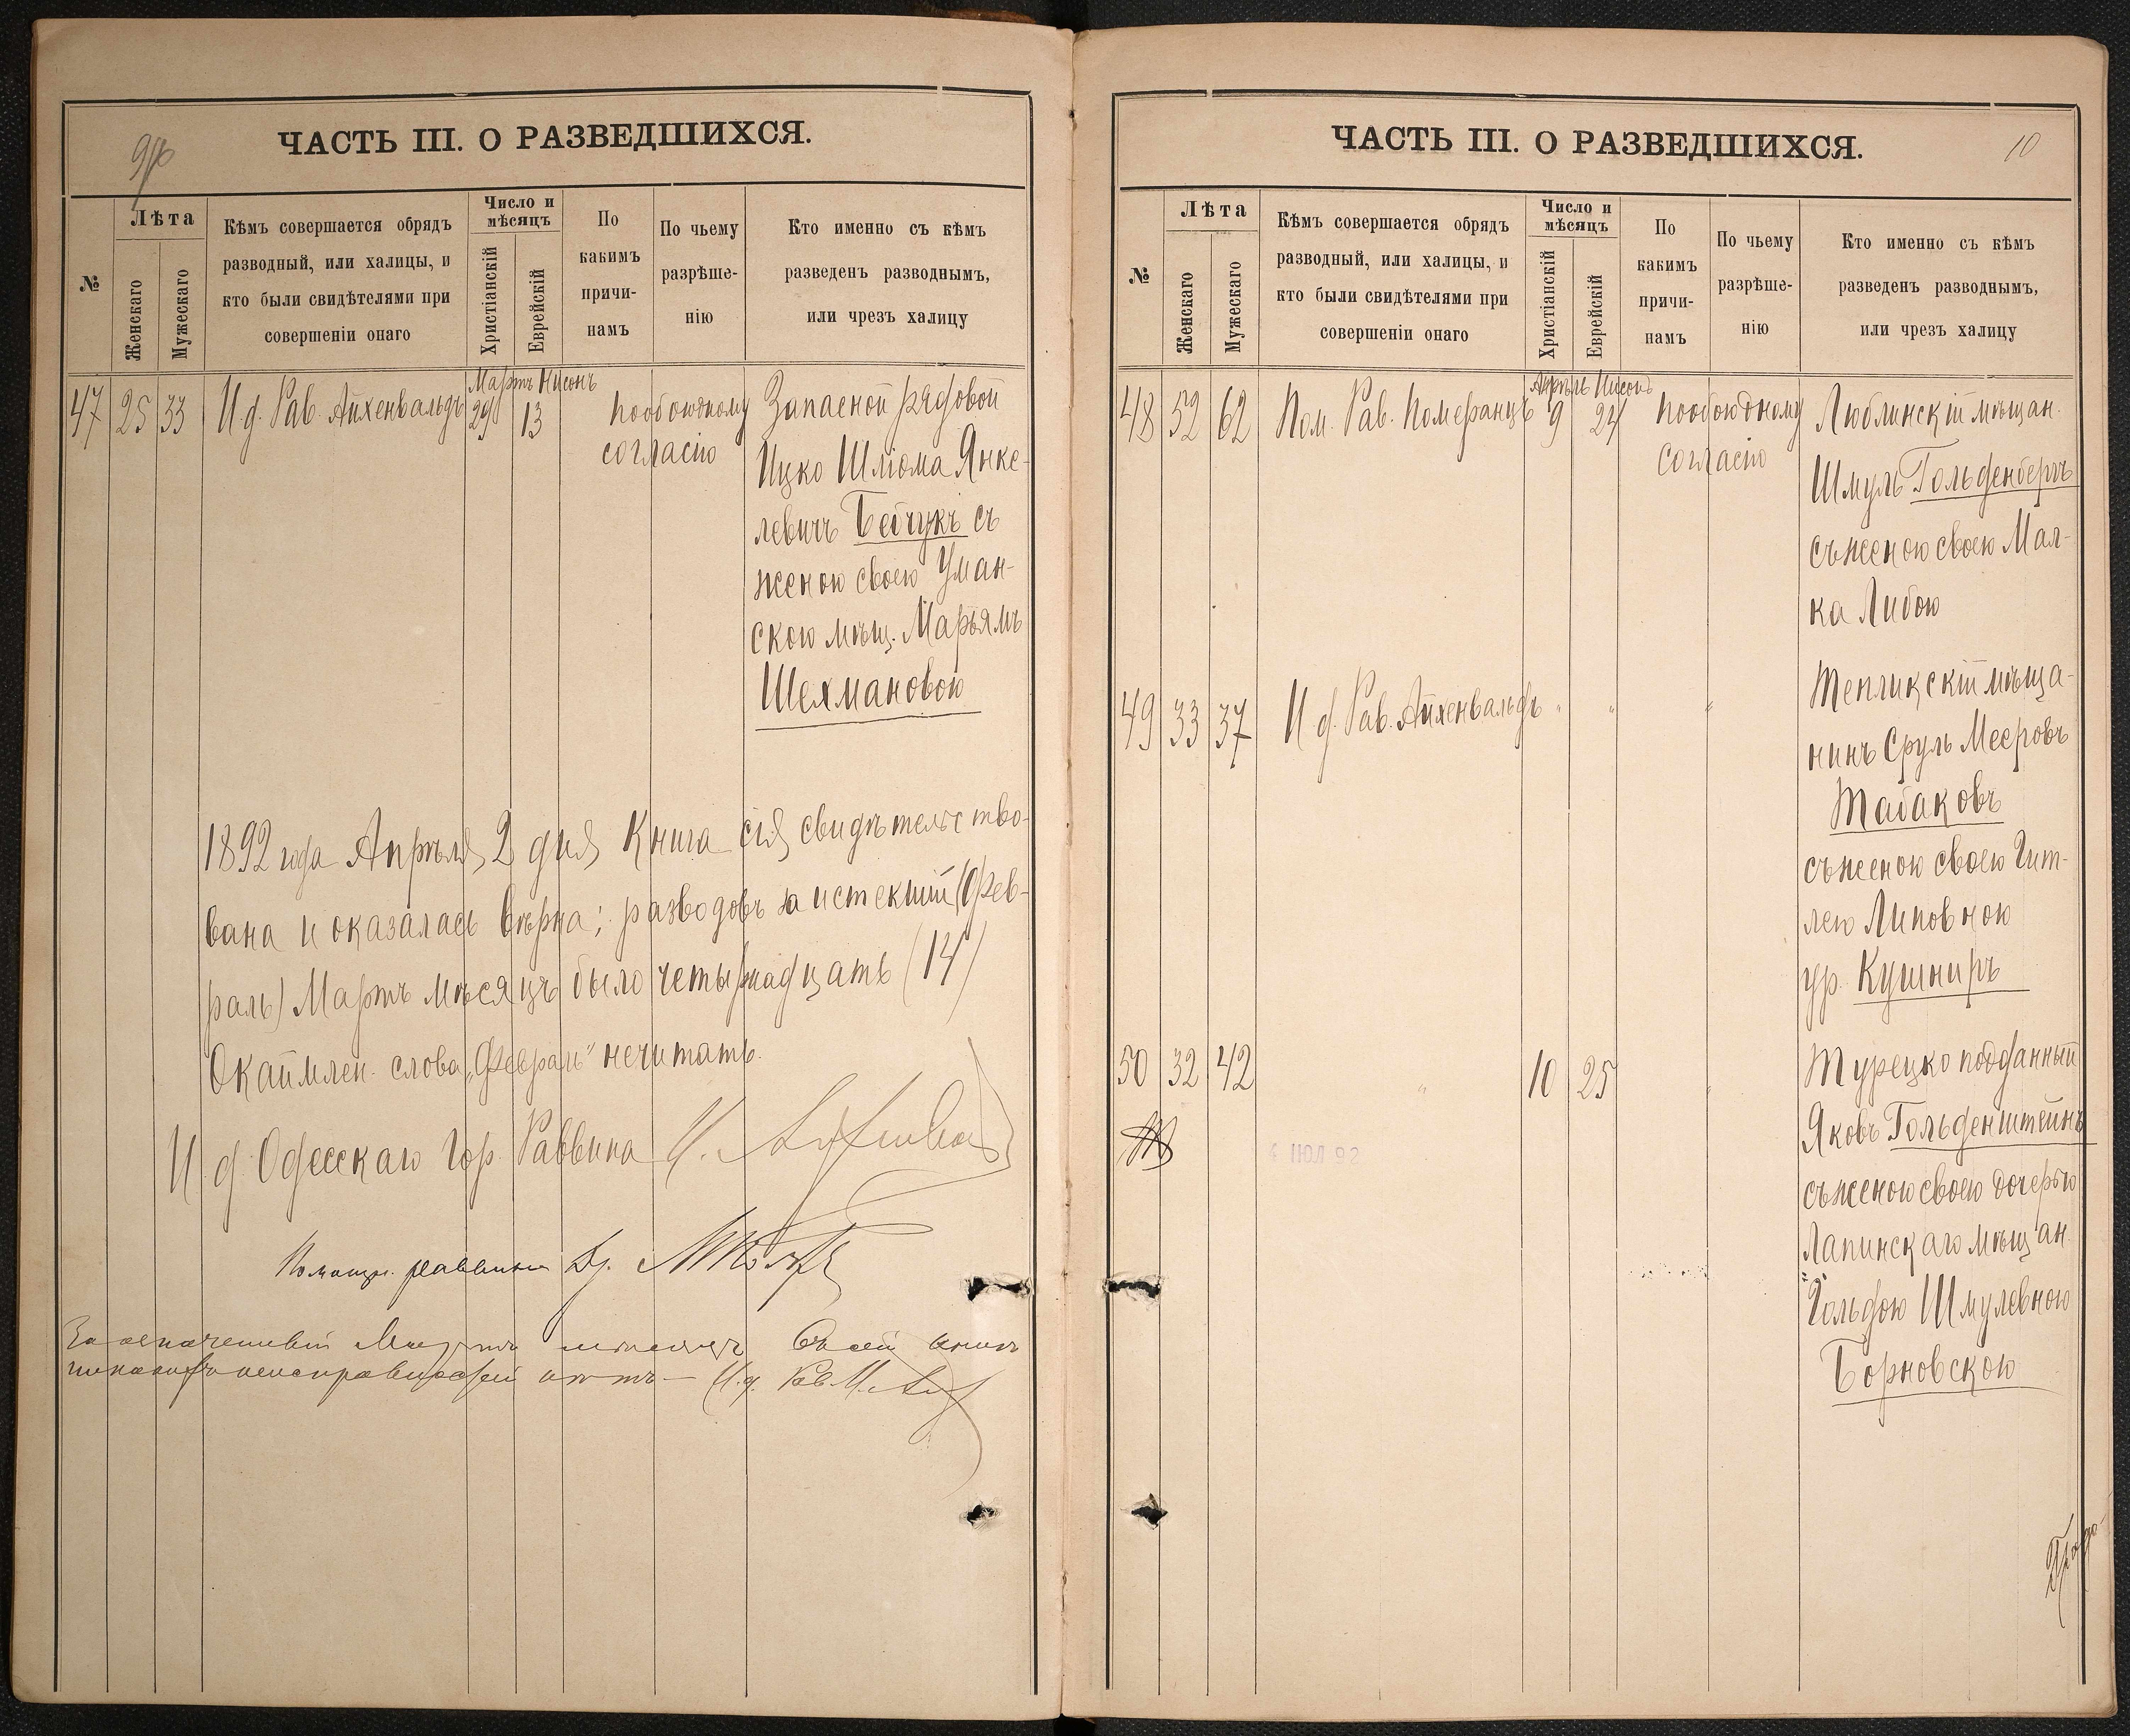 9об
ЧАСТЬ III. О РАЗВЕДШИХСЯ.
№
Лѣта
Женскаго
Мужескаго
Кѣмъ совершается обрядъ
разводный, или халицы, и
кто были свидѣтелями при
совершеніи онаго
Число и
мѣсяцъ
Христіанскій
Еврейскій
По
какимъ
причи-
намъ
По чьему
разрѣше-
нію
Кто именно съ кѣмъ
разведенъ разводнымъ,
или чрезъ халицу
Мартъ Нисонъ
47 25 33 И. д. Рав. Айхенвальдъ 29 13 по обоюдному Запасной рядовой
согласію
Ицко Шліома Янке-
левичъ Бейчукъ съ
женою своею Уман-
скою мѣщ. Марьямъ
Шехмановою
1892 года Апрѣля 2 дня Книга сія свидѣтельство-
вана и оказалась вѣрна; разводовъ за истекшій (Фев-
раль) Мартъ мѣсяцъ было четырнадцать (14)
Окаймлен. слова „Февраль" нечитать.
И д Одесскаго Гор. Раввина
Помощн. раввина Др.
За означенный Мартъ мѣсяцъ въ сей книгѣ
никакихъ неисправностей нѣтъ — И. д. Рав.
ЧАСТЬ III. О РАЗВЕДШИХСЯ.
10
№
Лѣта
Женскаго
Мужескаго
Кѣмъ совершается обрядъ
разводный, или халицы, и
кто были свидѣтелями при
совершеніи онаго
Число и
мѣсяцъ
Христіанскій
Еврейскій
По
какимъ
причи-
намъ
По чьему
разрѣше-
нію
Кто именно съ кѣмъ
разведенъ разводнымъ,
или чрезъ халицу
Апрѣль Нисонъ
48 52 62 Пом. Рав. Померанцъ 9 24 по обоюдному Люблинскій мѣщан.
согласію
Шмуль Гольденбергъ
съ женою своею Мал-
ка Либою
49 33 37 И. д. Рав. Айхенвальдъ " " " Тепликскій мѣща-
нинъ Сруль Мееровъ
Табаковъ
съ женою своею Гит-
лею Липовною
ур. Кушниръ
50 32 42 " 10 25 " Турецко подданный
Яковъ Гольденштейнъ
съ женою своею дочерью
Лапинскаго мѣщан.
Гольдою Шмулевною
Борновскою
ИЮЛ 92